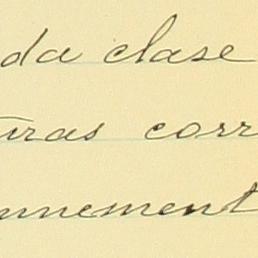 da clase
uras corr
nnement